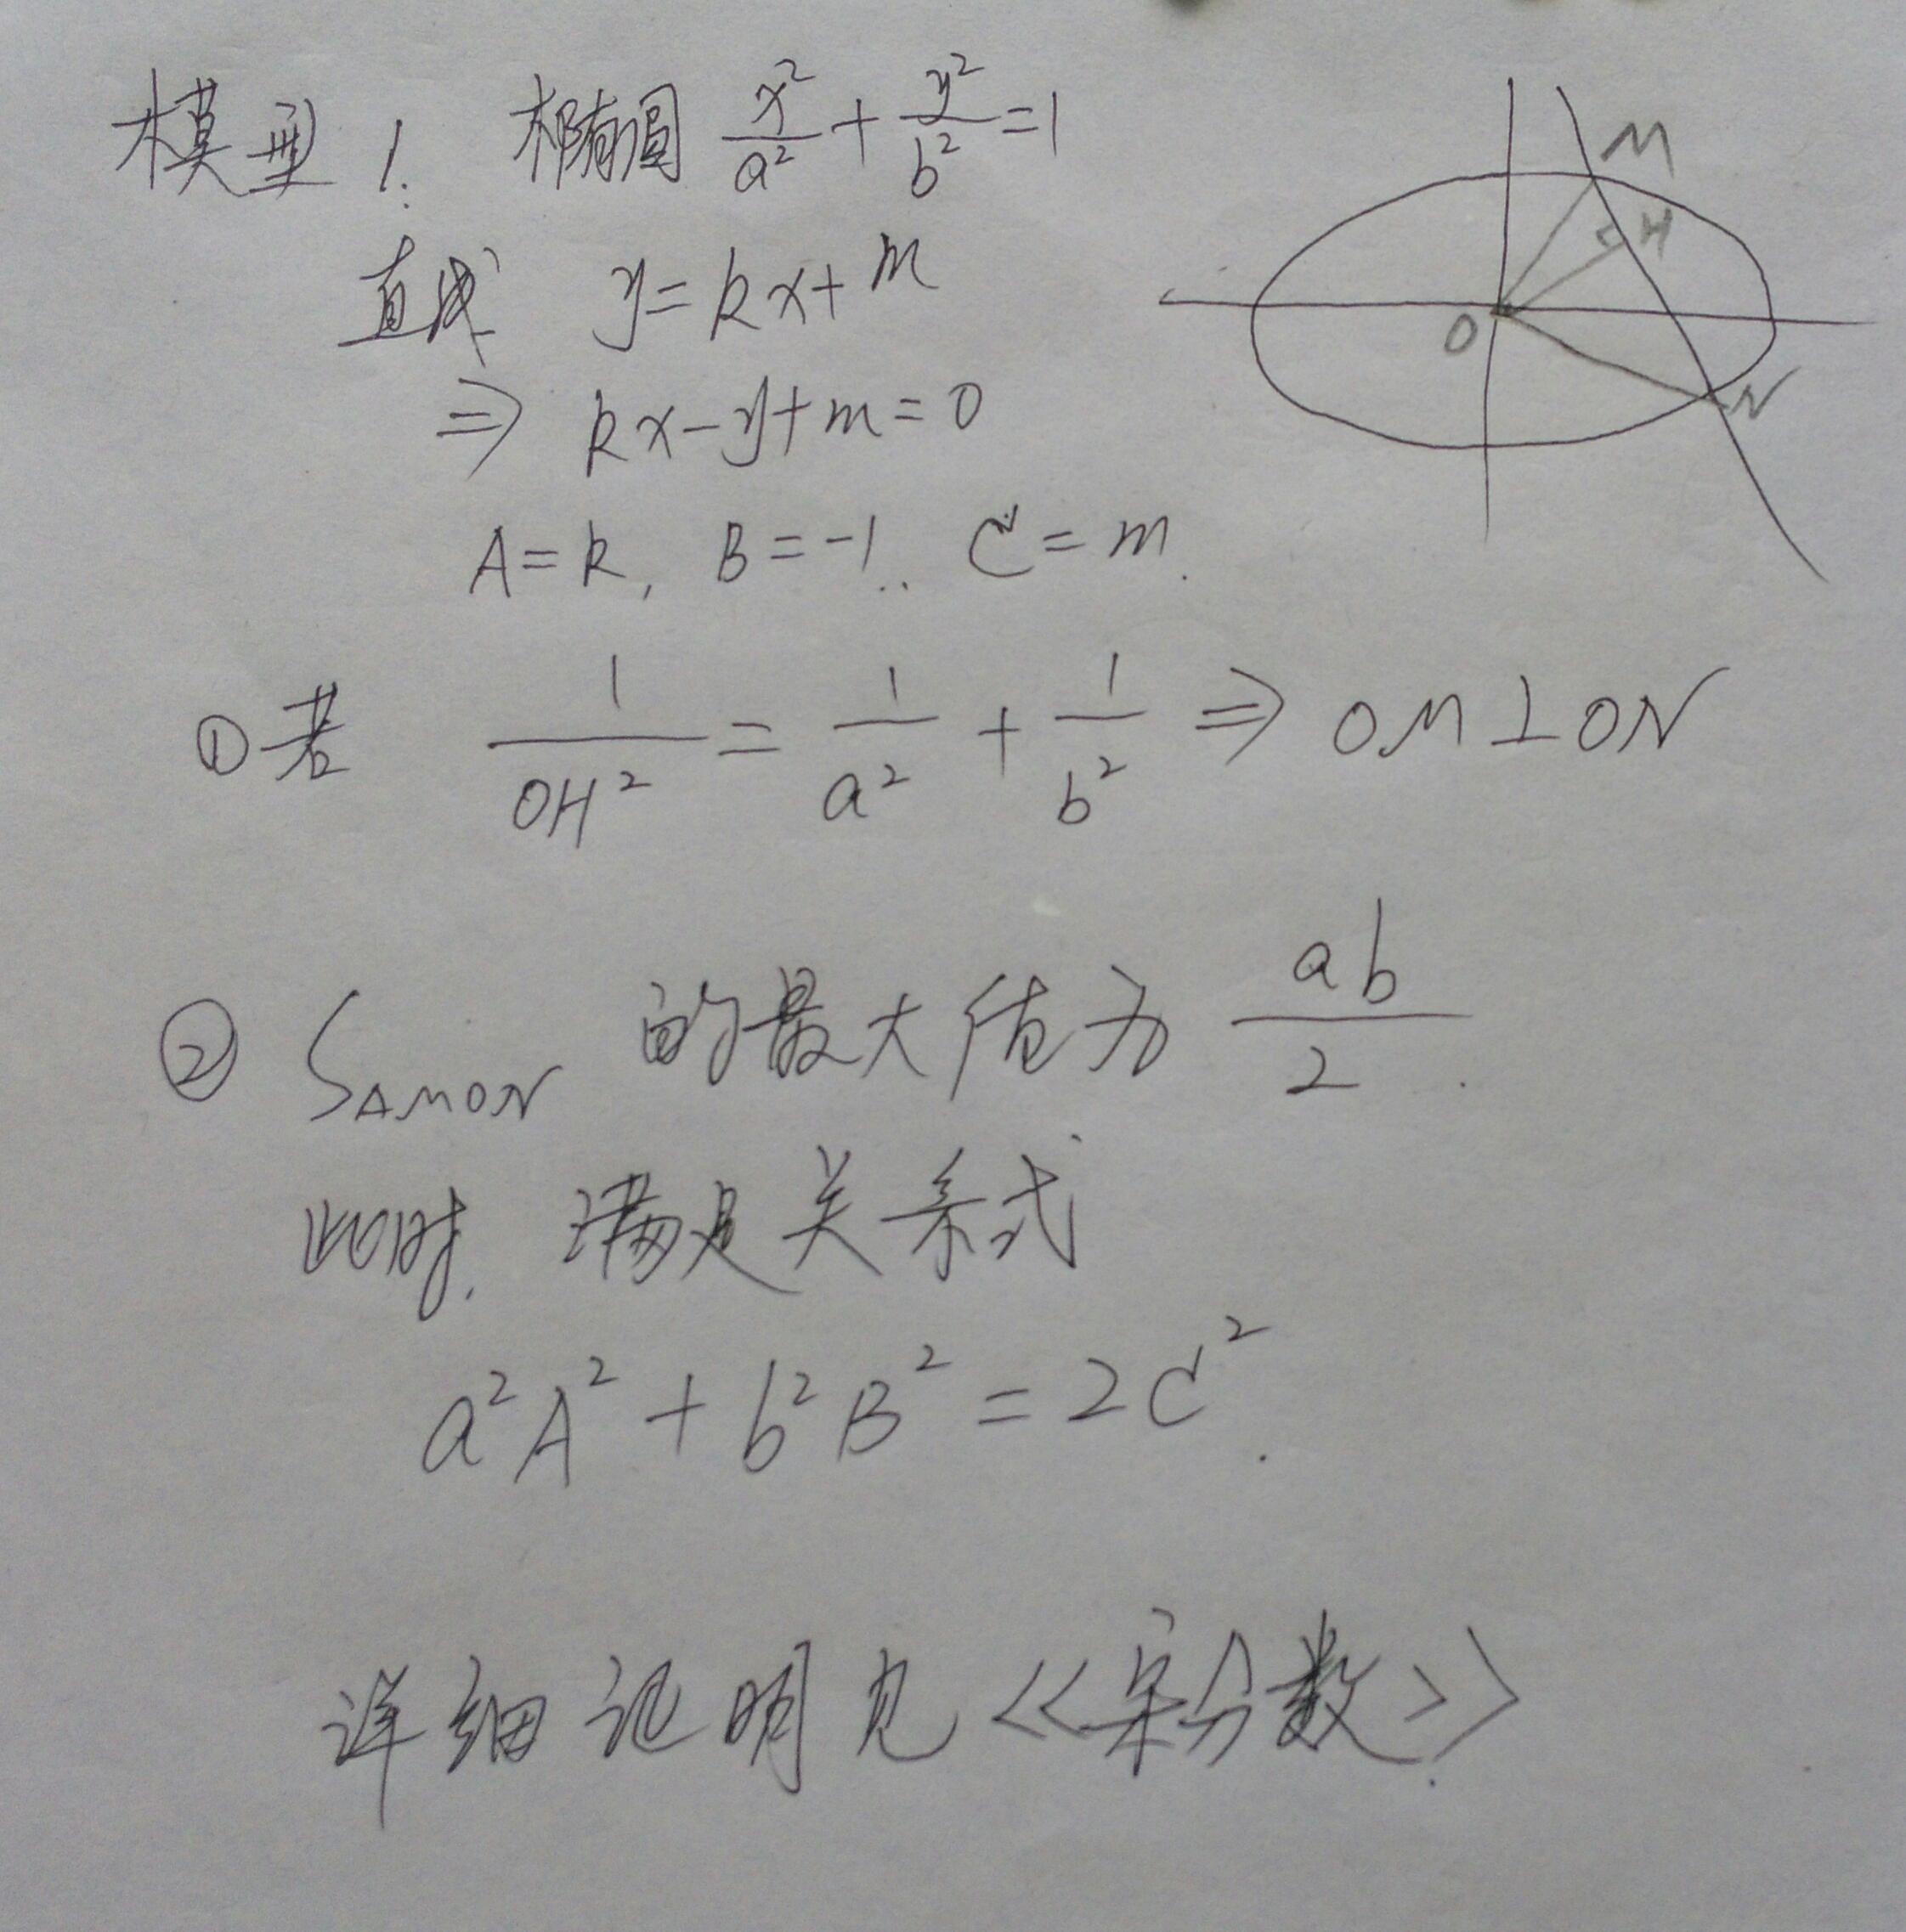 模型1. 椭圆 x²/a² + y²/b² = 1
直线 y = kx + m
⇒ kx - y + m = 0
A = k, B = -1. C = m.
M
H
O
N
①若 1/OH² = 1/a² + 1/b² ⇒ OM⊥ON
② S△MON 的最大值为 ab/2.
此时, 满足关系式
a²A² + b²B² = 2C².
详细证明见<<余分数>>